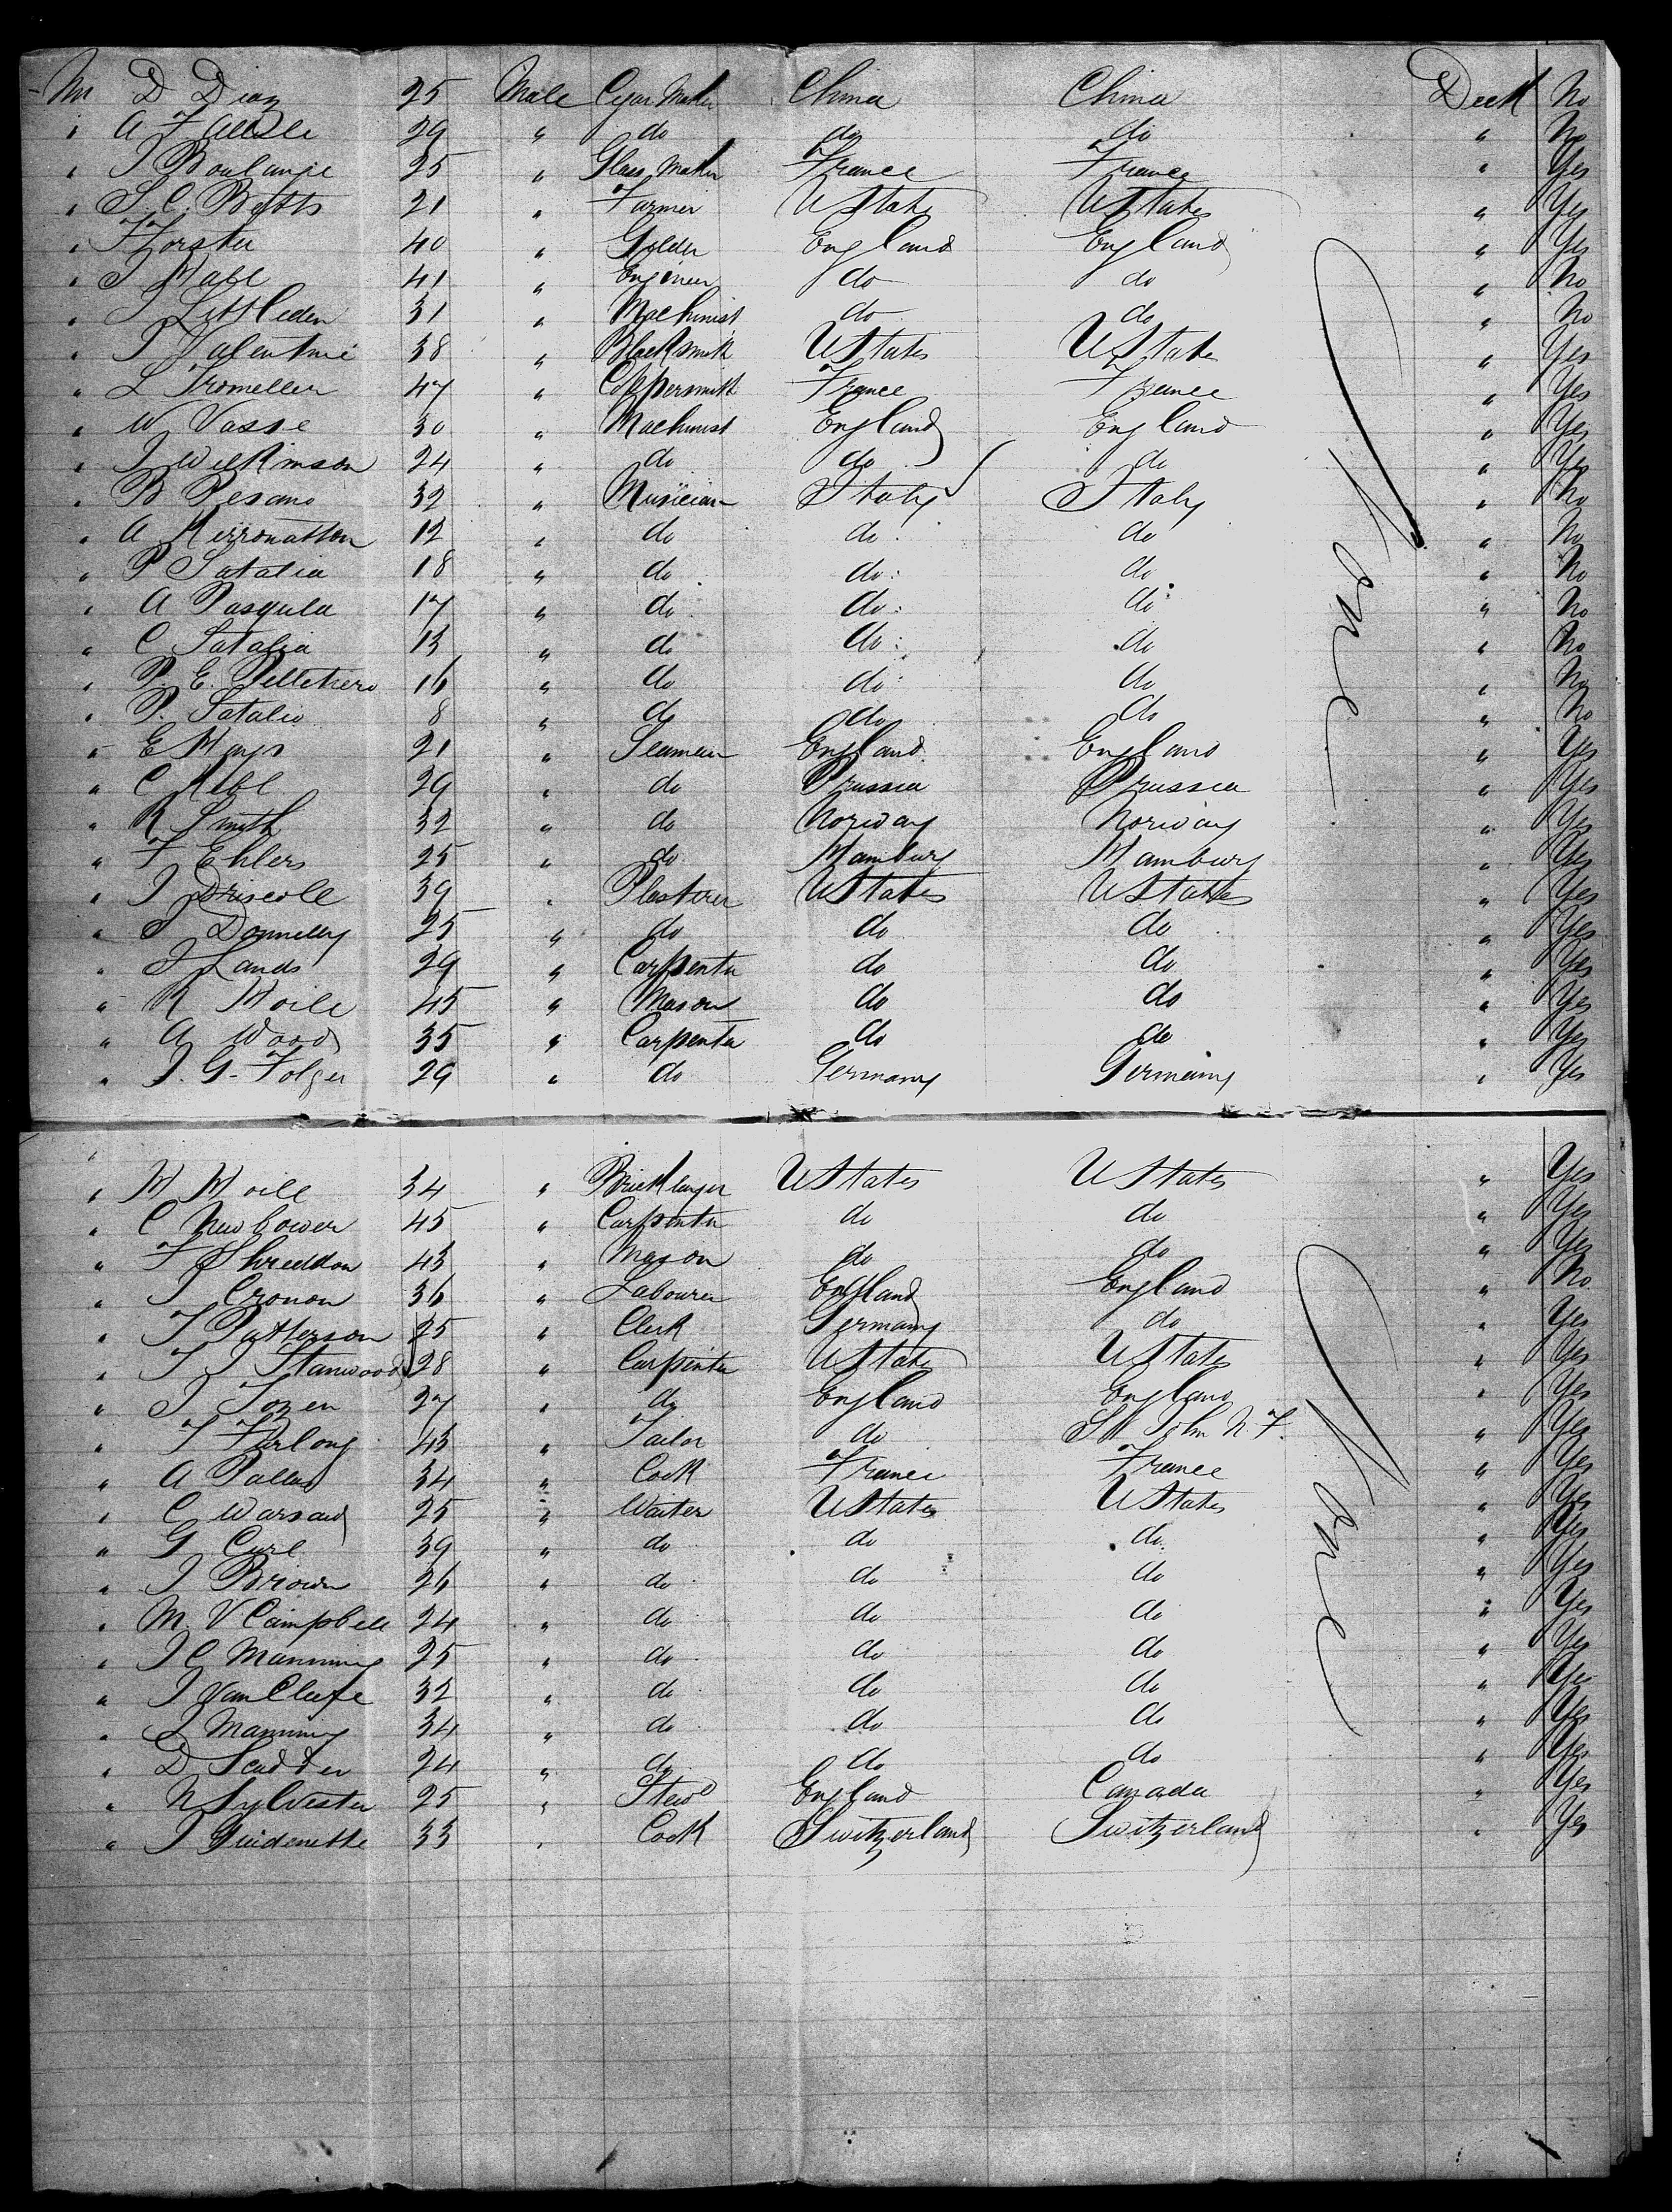 Mr D Diaz 25 Male Cigar Maker China China Deck No
" A F 29 " do do do " No
" J Boulanje 25 " Glass Maker France France " Yes
" S. C. Betts 21 " Farmer U States U States " Yes
" Forster 40 " England England " Yes
" J Hall 41 " Engineer do do " No
" J 31 " Machinist do do " No
" J Valentine 38 " BlackSmith U States U State " Yes
" L Tromeller 47 " Coppersmith France France " Yes
" W Vasse 30 " Machinist England England " Yes
" J Wilkinson 24 " do do do " Yes
" B Pesano 32 " Musician Italy Italy " No
" A 12 " do do do " No
" P Satalia 18 " do do do " No
" A Pasqula 17 " do do do " No
" C Satalia 13 " do do do " No
" P. E. Pelletiero 16 " do do do " No
" P. Satalio 8 " do do do " No
" E Hays 21 " Seaman England England " Yes
" C 29 " do Prussia Prussia " Yes
" R Smyth 32 " do Norway Norway " Yes
" F Ehlers 25 " do Hamburg Hamburg " Yes
" J Driscole 39 " Plasterer U States U States " Yes
" J Donnelly 25 " do do do " Yes
" J Sands 29 " Carpenter do do " Yes
" R Hoile 45 " Mason do do " Yes
" A Wood 35 " Carpenter do do " Yes
" J. G. Folger 29 " do Germany Germany " Yes
None
" H Hoile 34 " Bricklayer U States U States " Yes
" C Newbower 45 " Carpenter do do " Yes
" F Shreddon 43 " Mason do do " Yes
" J Cronon 36 " Labourer England England " No
" J Patterson 25 " Clerk Germany do " Yes
" T J Stanwood 28 " Carpenter U States U States " Yes
" J Tozen 27 " do England England " Yes
" T Furlong 43 " Tailor do St John N. F. " Yes
" A Pallas 34 " Cook France France " Yes
" C Warsaw 25 " Waiter U States U States " Yes
" G Curl 39 " do do do " Yes
" J Brown 26 " do do do " Yes
" M. V Campbell 24 " do do do " Yes
" J C Manning 25 " do do do " Yes
" J Van Cleefe 32 " do do do " Yes
" L Manning 34 " do do do " Yes
" D Scudder 24 " do do do " Yes
" N Sylvester 25 " Stewd England Canada " Yes
" J Guidenette 33 " Cook Switzerland Switzerland " Yes
None